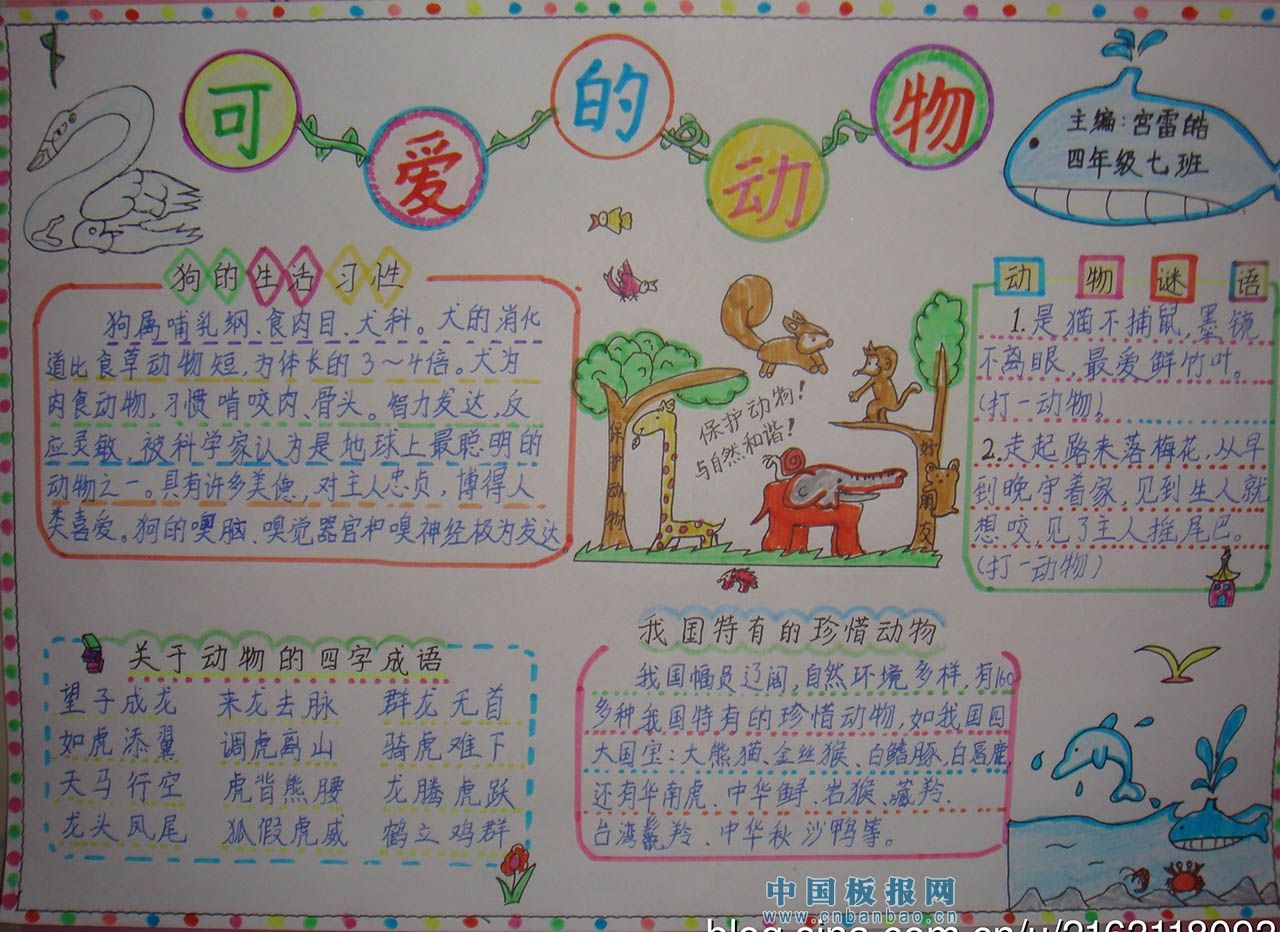 可爱的动物
主编:宫雷皓
四年级七班
狗的生活习性
狗属哺乳纲、食肉目、犬科。犬的消化
道比食草动物短,为体长的3～4倍。犬为
肉食动物,习惯啃咬肉、骨头。智力发达,反
应灵敏,被科学家认为是地球上最聪明的
动物之一。具有许多美德,对主人忠贞,博得人
类喜爱。狗的嗅脑、嗅觉器官和嗅神经极为发达
保护动物!
与自然和谐!
保护动物
好朋友
动物谜语
1.是猫不捕鼠,墨镜
不离眼,最爱鲜竹叶。
(打一动物)
2.走起路来落梅花,从早
到晚守着家,见到生人就
想咬,见了主人摇尾巴。
(打一动物)
关于动物的四字成语
望子成龙 来龙去脉 群龙无首
如虎添翼 调虎离山 骑虎难下
天马行空 虎背熊腰 龙腾虎跃
龙头凤尾 狐假虎威 鹤立鸡群
我国特有的珍惜动物
我国幅员辽阔,自然环境多样,有160
多种我国特有的珍惜动物,如我国四
大国宝:大熊猫、金丝猴、白鳍豚,白唇鹿,
还有华南虎、中华鲟、岩猴、藏羚、
台湾鬣羚、中华秋沙鸭等。
中国板报网
www.cnbanbao.cn